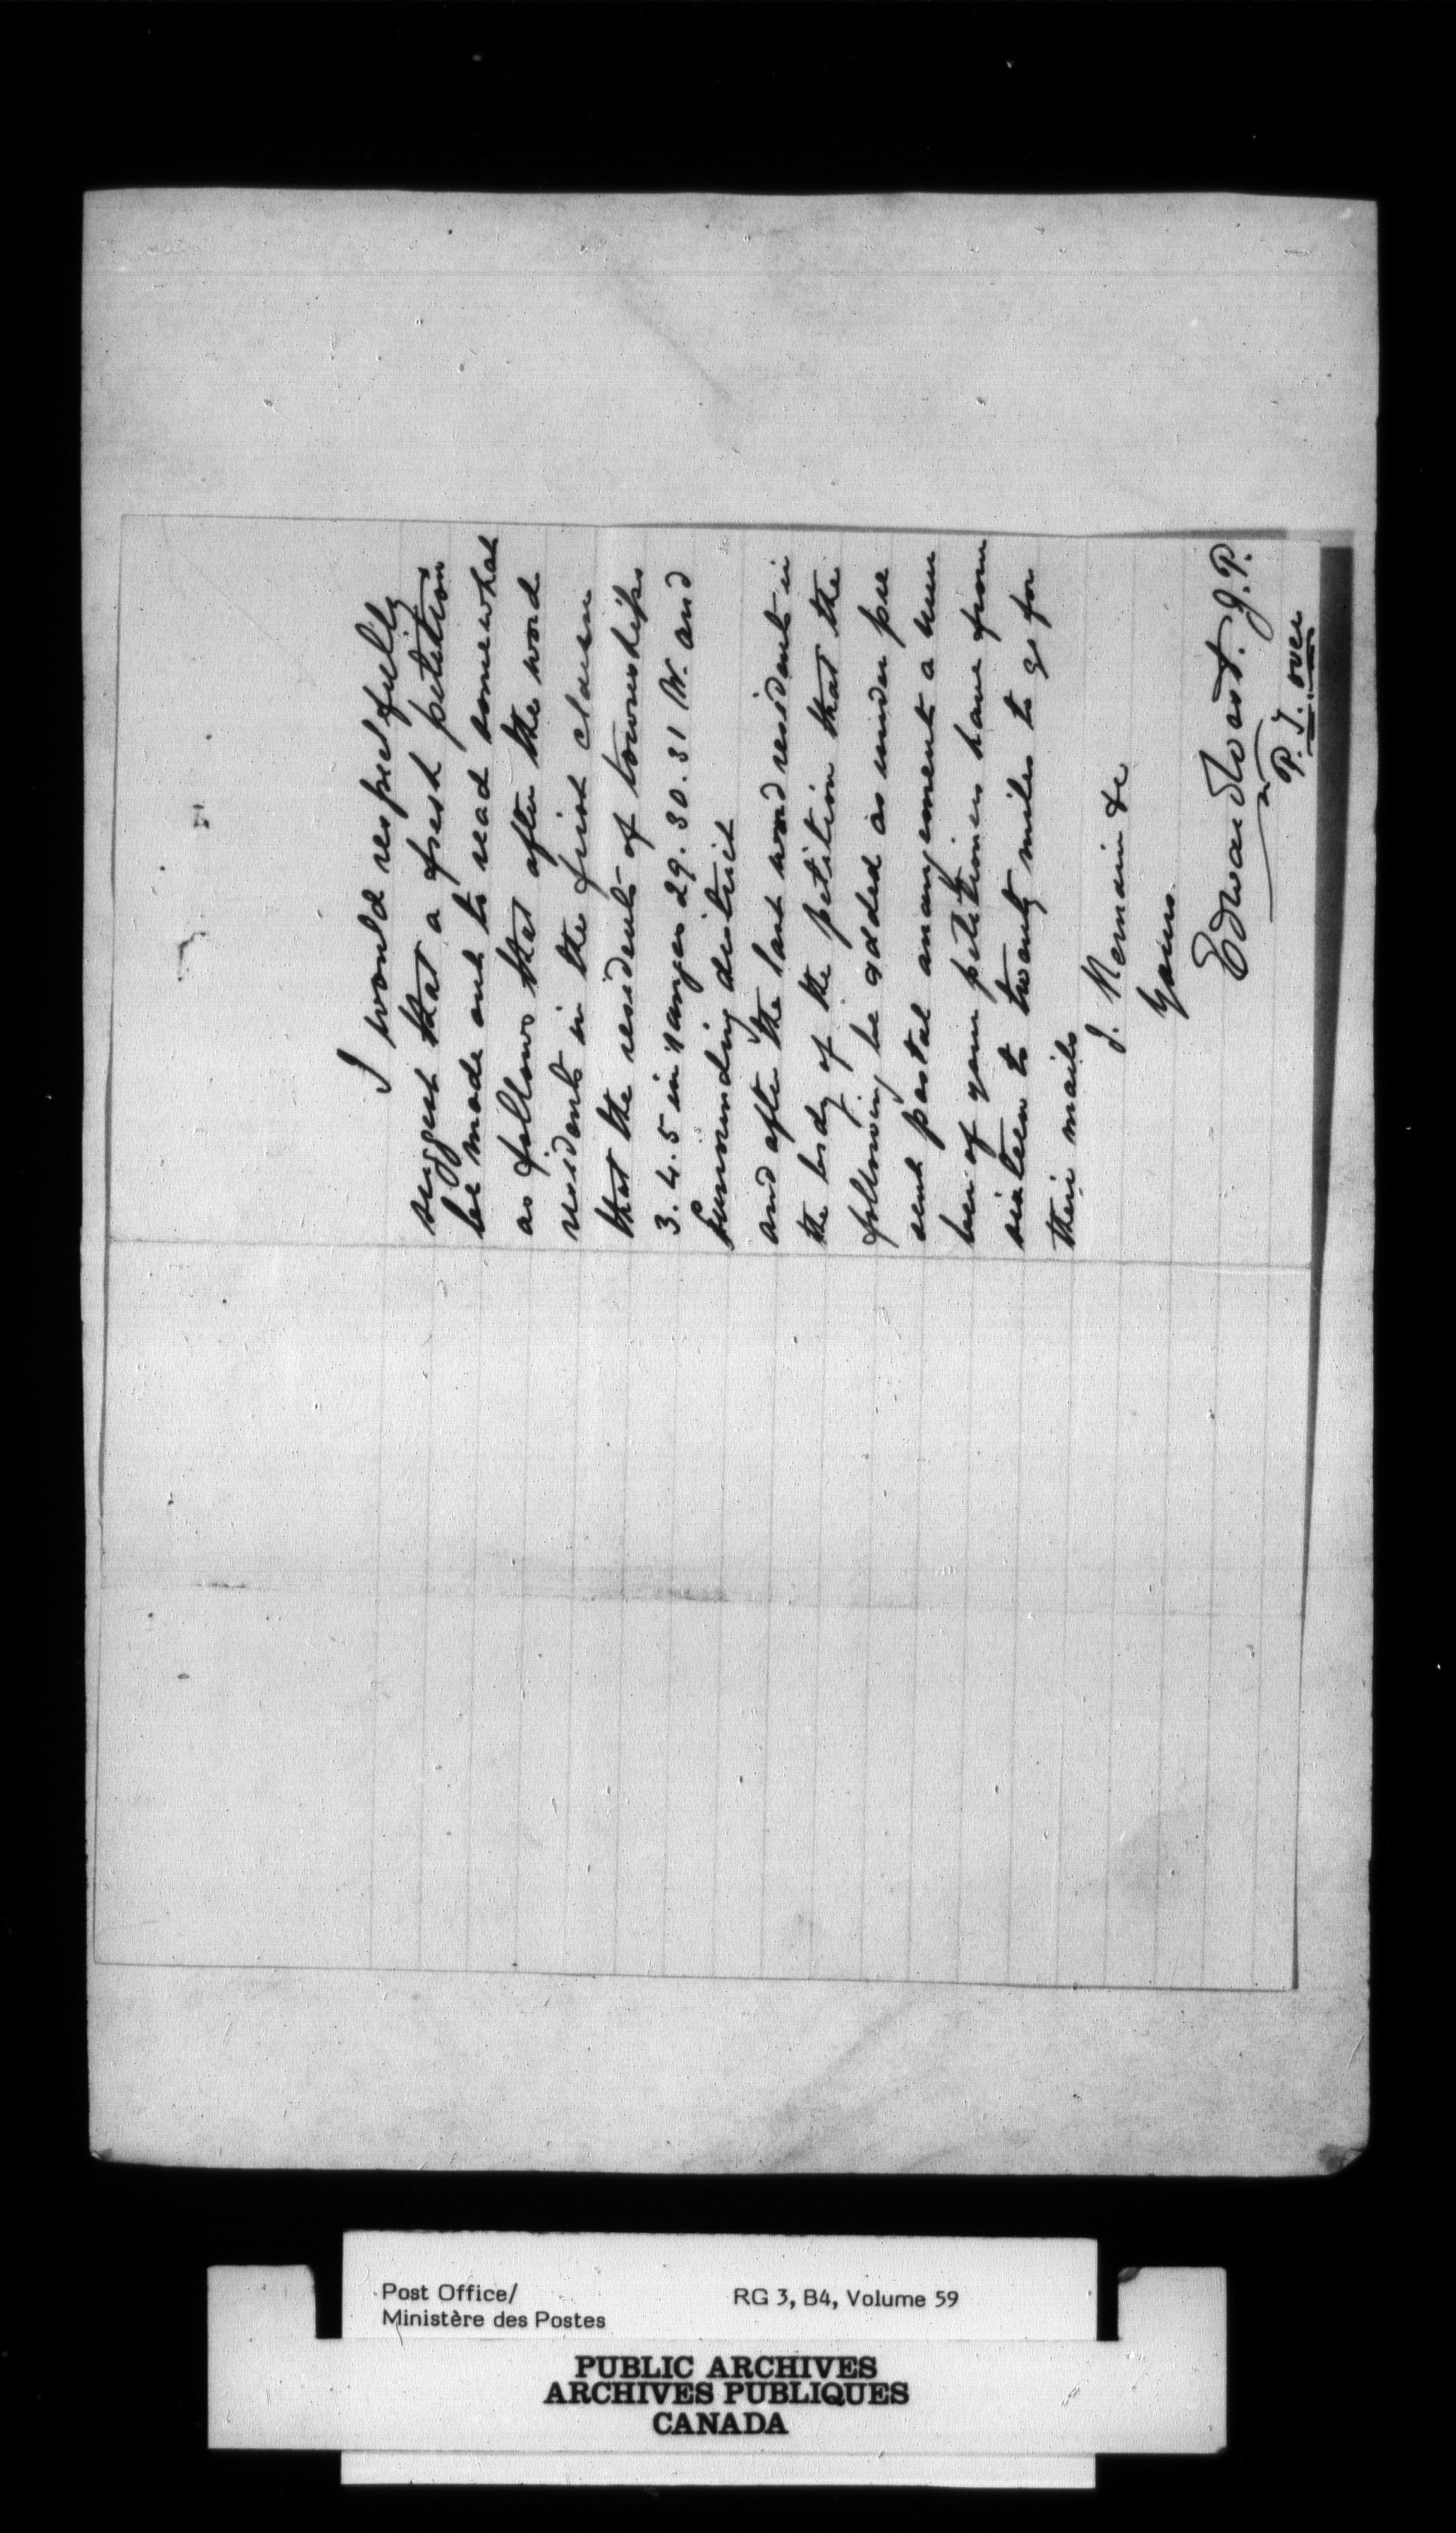 I would respectfully
suggest that a fresh petition
be made out to read somewhat
as follows that after the word
residents in the first clause
that the residents of townships
3. 4. 5 in ranges 29. 30. 31 W. and
surrounding district
and after the last word residents in
the body of the petition that the
following be added as under pre
sent postal arrangements a num
ber of your petitioners have from
sixteen to twenty miles to go for
their mails
I. Remain &c
Yours
Edward West. J.P.
P. T. over
Post Office/
Ministère des Postes
RG 3, B4, Volume 59
PUBLIC ARCHIVES
ARCHIVES PUBLIQUES
CANADA